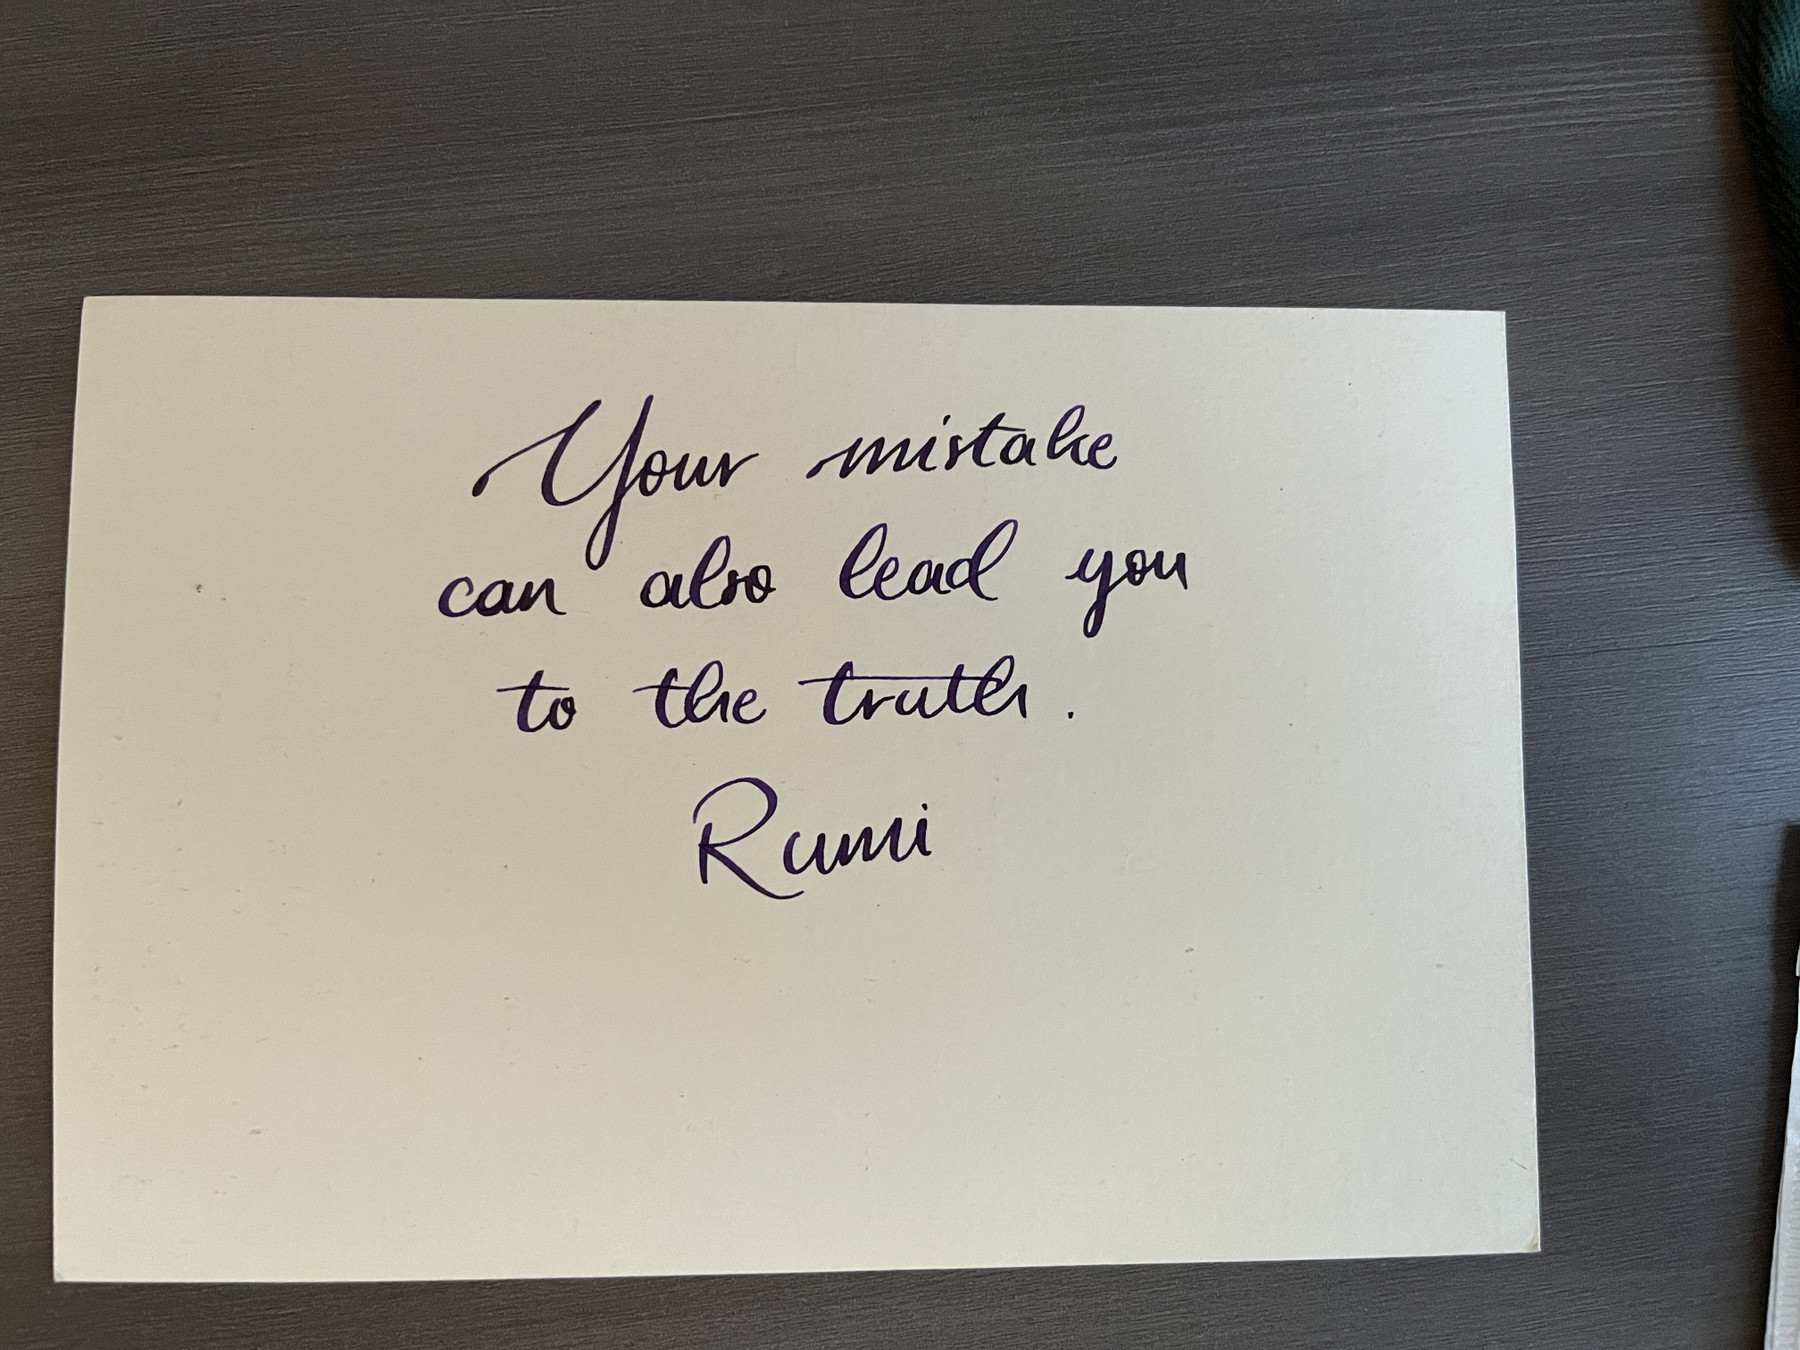 Your mistake
can also lead you
to the truth.
Rumi